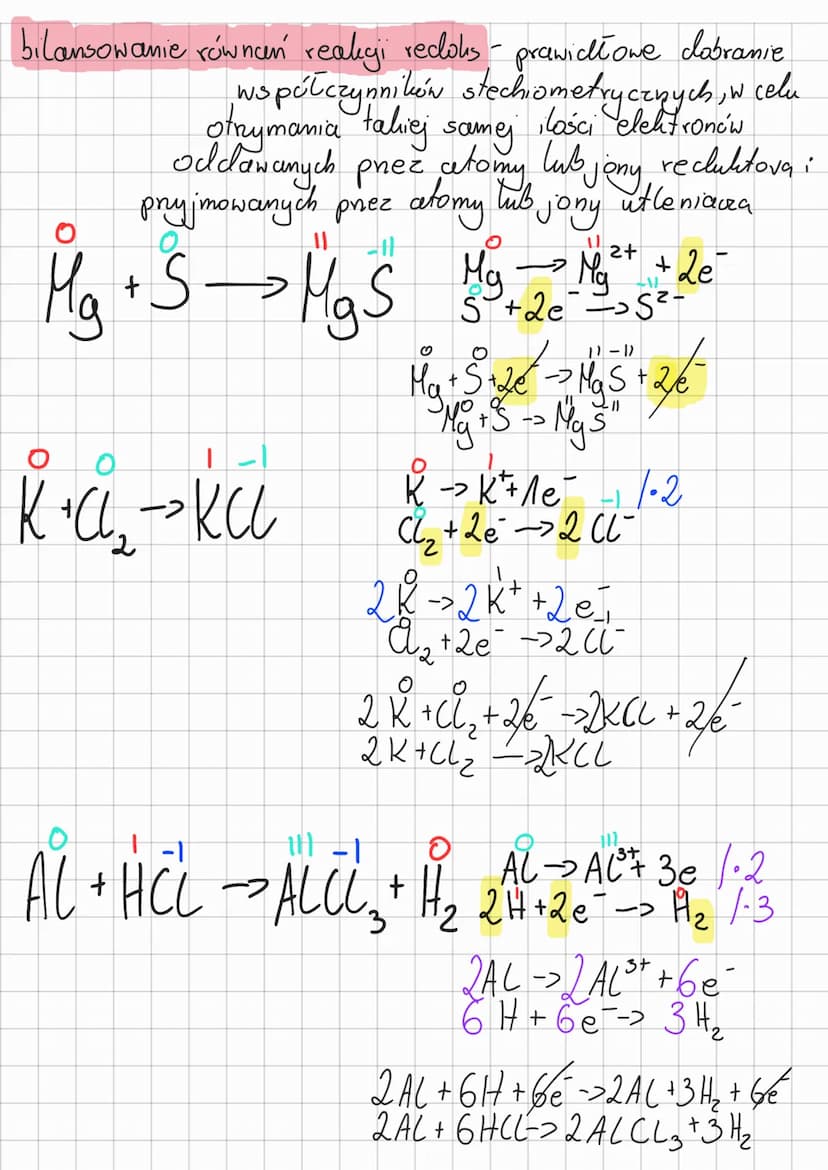 bilansowanie równań reakcji redoks - prawidłowe dobranie
współczynników stechiometrycznych, w celu
otrzymania takiej samej ilości elektronów
oddawanych przez atomy lub jony reduktora i
przyjmowanych przez atomy lub jony utleniacza
0 0 II -II
Mg + S → MgS
0 II
Mg → Mg²⁺ + 2e⁻
0 -II
S + 2e⁻ → S²⁻
0 0 II -II
Mg + S + 2e⁻ → MgS + 2e⁻
0 0 II II
Mg + S → MgS
0 0 I -I
K + Cl₂ → KCl
0 I
K → K⁺ + 1e⁻ /·2
0 -I
Cl₂ + 2e⁻ → 2Cl⁻
0 I
2K → 2K⁺ + 2e⁻
0 -I
Cl₂ + 2e⁻ → 2Cl⁻
0 0
2K + Cl₂ + 2e⁻ → 2KCl + 2e⁻
2K + Cl₂ → 2KCl
0 I -I III -I 0
Al + HCl → AlCl₃ + H₂
0 III
Al → Al³⁺ + 3e /·2
I 0
2H + 2e⁻ → H₂ /·3
2Al → 2Al³⁺ + 6e⁻
6H + 6e⁻ → 3H₂
2Al + 6H + 6e⁻ → 2Al + 3H₂ + 6e⁻
2Al + 6HCl → 2AlCl₃ + 3H₂